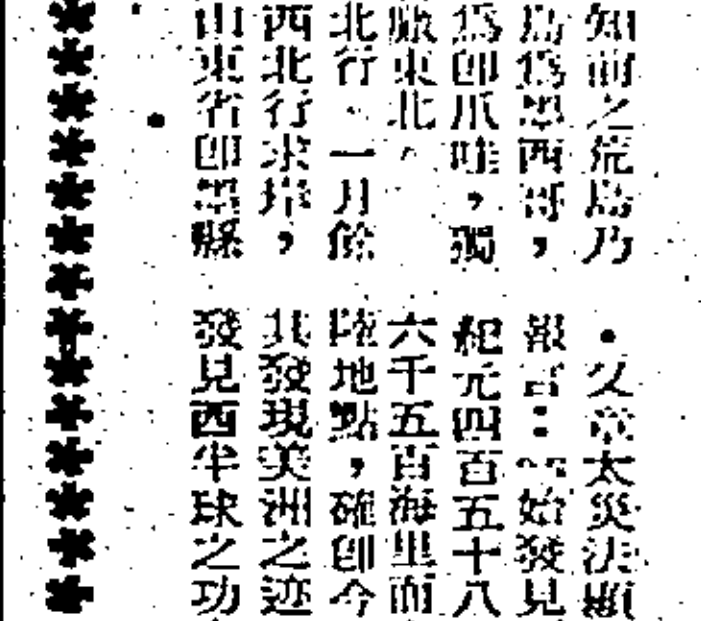 知前之荒島乃
島爲墨西哥，
爲卽爪哇，獨
脈東北，
北行。一月餘
西北行求岸，
山東省卽墨縣
・又章太炎法顯
報言：「始發見
紀元四百五十八
六千五百海里而
陸地點，確卽今
其發現美洲之迹
發見西半球之功